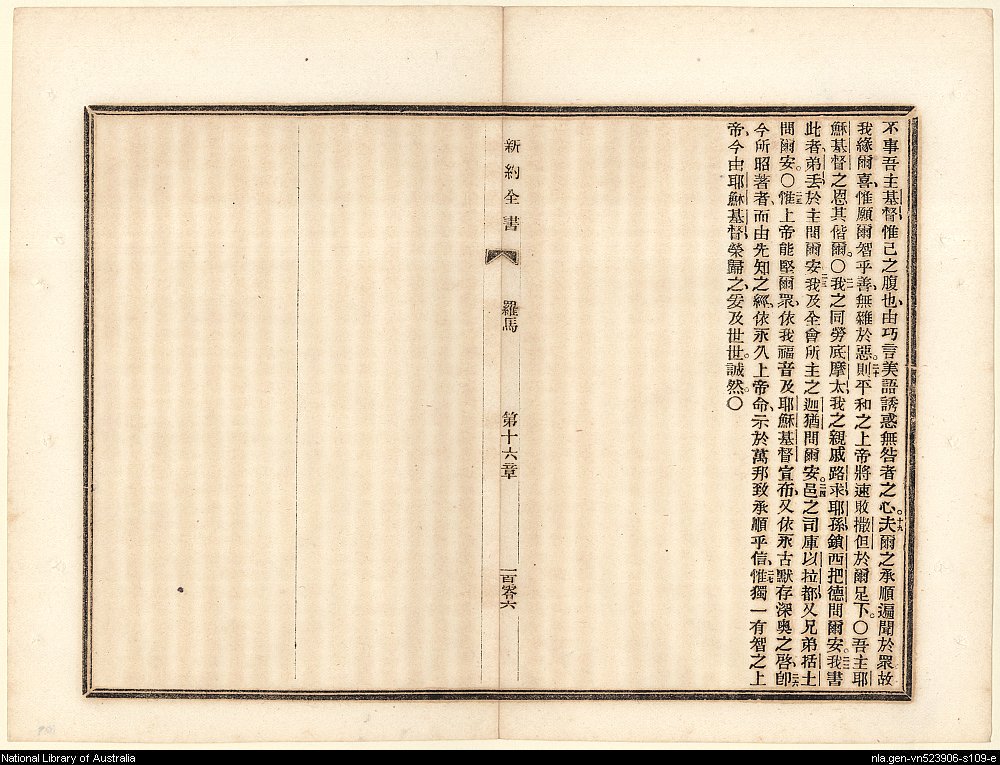 不事吾主基督、惟己之腹也、由巧言美語誘惑無咎者之心。十九夫爾之承順遍聞於眾、故
我緣爾喜、惟願爾智乎善、無雜於惡。二十則平和之上帝將速敗撒但於爾足下。〇吾主耶
穌基督之恩其偕爾。〇二一我之同勞底摩太、我之親戚路求、耶孫、鎖西把德問爾安。二二我書
此者、弟丢於主問爾安。二三我及全會所主之迦猶問爾安。二四邑之司庫以拉都、又兄弟括土
問爾安。〇二五惟上帝能堅爾眾、依我福音及耶穌基督宣布、又依永古默存深奧之啓、二六卽
今所昭著者、而由先知之經、依永久上帝命、示於萬邦、致承順乎信、二七惟獨一有智之上
帝、今由耶穌基督、榮歸之、爰及世世。誠然。〇
新約全書
羅馬
第十六章
一百零六
National Library of Australia
nla.gen-vn523906-s109-e